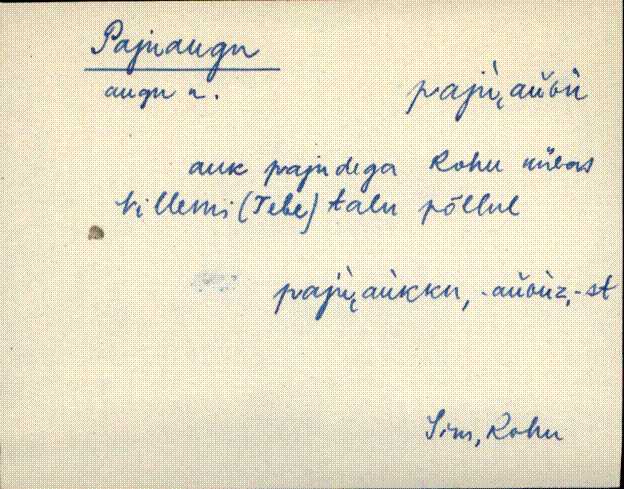 Pajuaugu
augu n.
paju̯ au̬ᴅu
auk pajudega Rohu külas
Villemi (Tebe) talu põllul
paju̯ aukku, -au̬ᴅuz, -st
Sim, Rohu